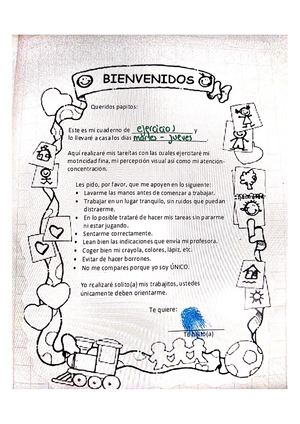 BIENVENIDOS
Queridos papitos:
Este es mi cuaderno de ejercicios y
lo llevaré a casa los días martes - jueves
Aquí realizaré mis tareitas con las cuales ejercitaré mi
motricidad fina, mi percepción visual así como mi atención-
concentración.
Les pido, por favor, que me apoyen en lo siguiente:
• Lavarme las manos antes de comenzar a trabajar.
• Trabajar en un lugar tranquilo, sin ruidos que puedan
distraerme.
• En lo posible trataré de hacer mis tareas sin pararme
ni estar jugando.
• Sentarme correctamente.
• Lean bien las indicaciones que envía mi profesora.
• Coger bien mi crayola, colores, lápiz, etc.
• Evitar de hacer borrones.
• No me compares porque yo soy ÚNICO.
Yo realizaré solito(a) mis trabajitos, ustedes
únicamente deben orientarme.
Te quiere:
Tu hijito(a)